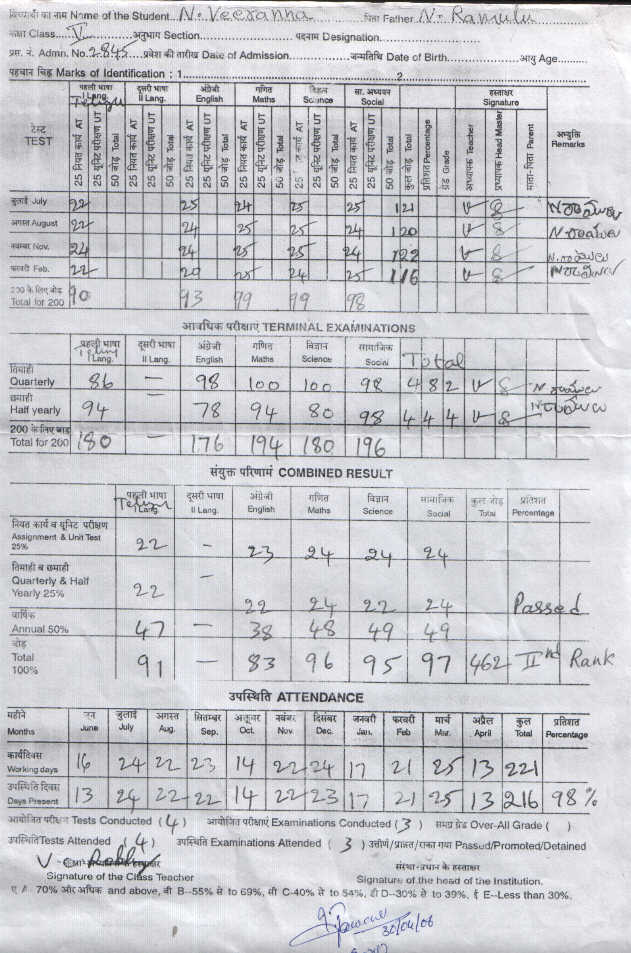 विद्यार्थी का नाम Name of the Student N. Veeranna पिता Father N. Ramulu
कक्षा Class V अनुभाग Section पदनाम Designation
प्रस. नं. Admn. No. 2845 प्रवेश की तारीख Date of Admission जन्मतिथि Date of Birth आयु Age
पहचान चिह्न Marks of Identification : 1 2
टेस्ट TEST पहली भाषा I Lang. Telugu दूसरी भाषा II Lang. अंग्रेजी English गणित Maths विज्ञान Science सा. अध्ययन Social हस्ताक्षर Signature अभ्युक्ति Remarks
25 नियत कार्य AT 25 यूनिट परीक्षण UT 50 जोड़ Total 25 नियत कार्य AT 25 यूनिट परीक्षण UT 50 जोड़ Total 25 नियत कार्य AT 25 यूनिट परीक्षण UT 50 जोड़ Total 25 नियत कार्य AT 25 यूनिट परीक्षण UT 50 जोड़ Total 25 नियत कार्य AT 25 यूनिट परीक्षण UT 50 जोड़ Total 25 नियत कार्य AT 25 यूनिट परीक्षण UT 50 जोड़ Total कुल जोड़ Total प्रतिशत Percentage ग्रेड Grade अध्यापक Teacher प्रध्यापक Head Master माता-पिता Parent
जुलाई July 22 25 24 25 25 121 N రాములు
अगस्त August 22 24 25 25 24 120 N రాములు
नवम्बर Nov. 24 24 25 25 24 122 N. రాములు
फरवरी Feb. 22 20 25 24 25 116 N రాములు
200 के लिए जोड़ Total for 200 90 93 99 99 98
आवधिक परीक्षाएं TERMINAL EXAMINATIONS
पहली भाषा Telugu I Lang. दूसरी भाषा II Lang. अंग्रेजी English गणित Maths विज्ञान Science सामाजिक Social Total
तिमाही Quarterly 86 — 98 100 100 98 482 N రాములు
छमाही Half yearly 94 78 94 80 98 444 N రాములు
200 के लिए जोड़ Total for 200 180 — 176 194 180 196
संयुक्त परिणामं COMBINED RESULT
पहली भाषा Telugu I Lang. दूसरी भाषा II Lang. अंग्रेजी English गणित Maths विज्ञान Science सामाजिक Social कुल जोड़ Total प्रतिशत Percentage
नियत कार्य व यूनिट परीक्षण Assignment & Unit Test 25% 22 — 23 24 24 24
तिमाही व छमाही Quarterly & Half Yearly 25% 22 — 22 24 22 24 Passed
वार्षिक Annual 50% 47 38 48 49 49
जोड़ Total 100% 91 — 83 96 95 97 462 IInd Rank
उपस्थिति ATTENDANCE
महीने Months जून June जुलाई July अगस्त Aug. सितम्बर Sep. अक्तूबर Oct. नवंबर Nov. दिसंबर Dec. जनवरी Jan. फरवरी Feb मार्च Mar. अप्रैल April कुल Total प्रतिशत Percentage
कार्यदिवस Working days 16 24 22 23 14 22 24 17 21 25 13 221
उपस्थिति दिवस Days Present 13 24 22 22 14 22 23 17 21 25 13 216 98%
आयोजित परीक्षण Tests Conducted (4) आयोजित परीक्षाएं Examinations Conducted (3) समग्र ग्रेड Over-All Grade ( )
उपस्थिति Tests Attended (4) उपस्थिति Examinations Attended (3) उत्तीर्ण/प्रोन्नत/रोका गया Passed/Promoted/Detained
संस्था-प्रधान के हस्ताक्षर
Signature of the Class Teacher Signature of the head of the Institution.
ए A 70% और अधिक and above, बी B--55% से to 69%, सी C-40% से to 54%, डी D--30% से to 39%, ई E--Less than 30%.
30/04/06